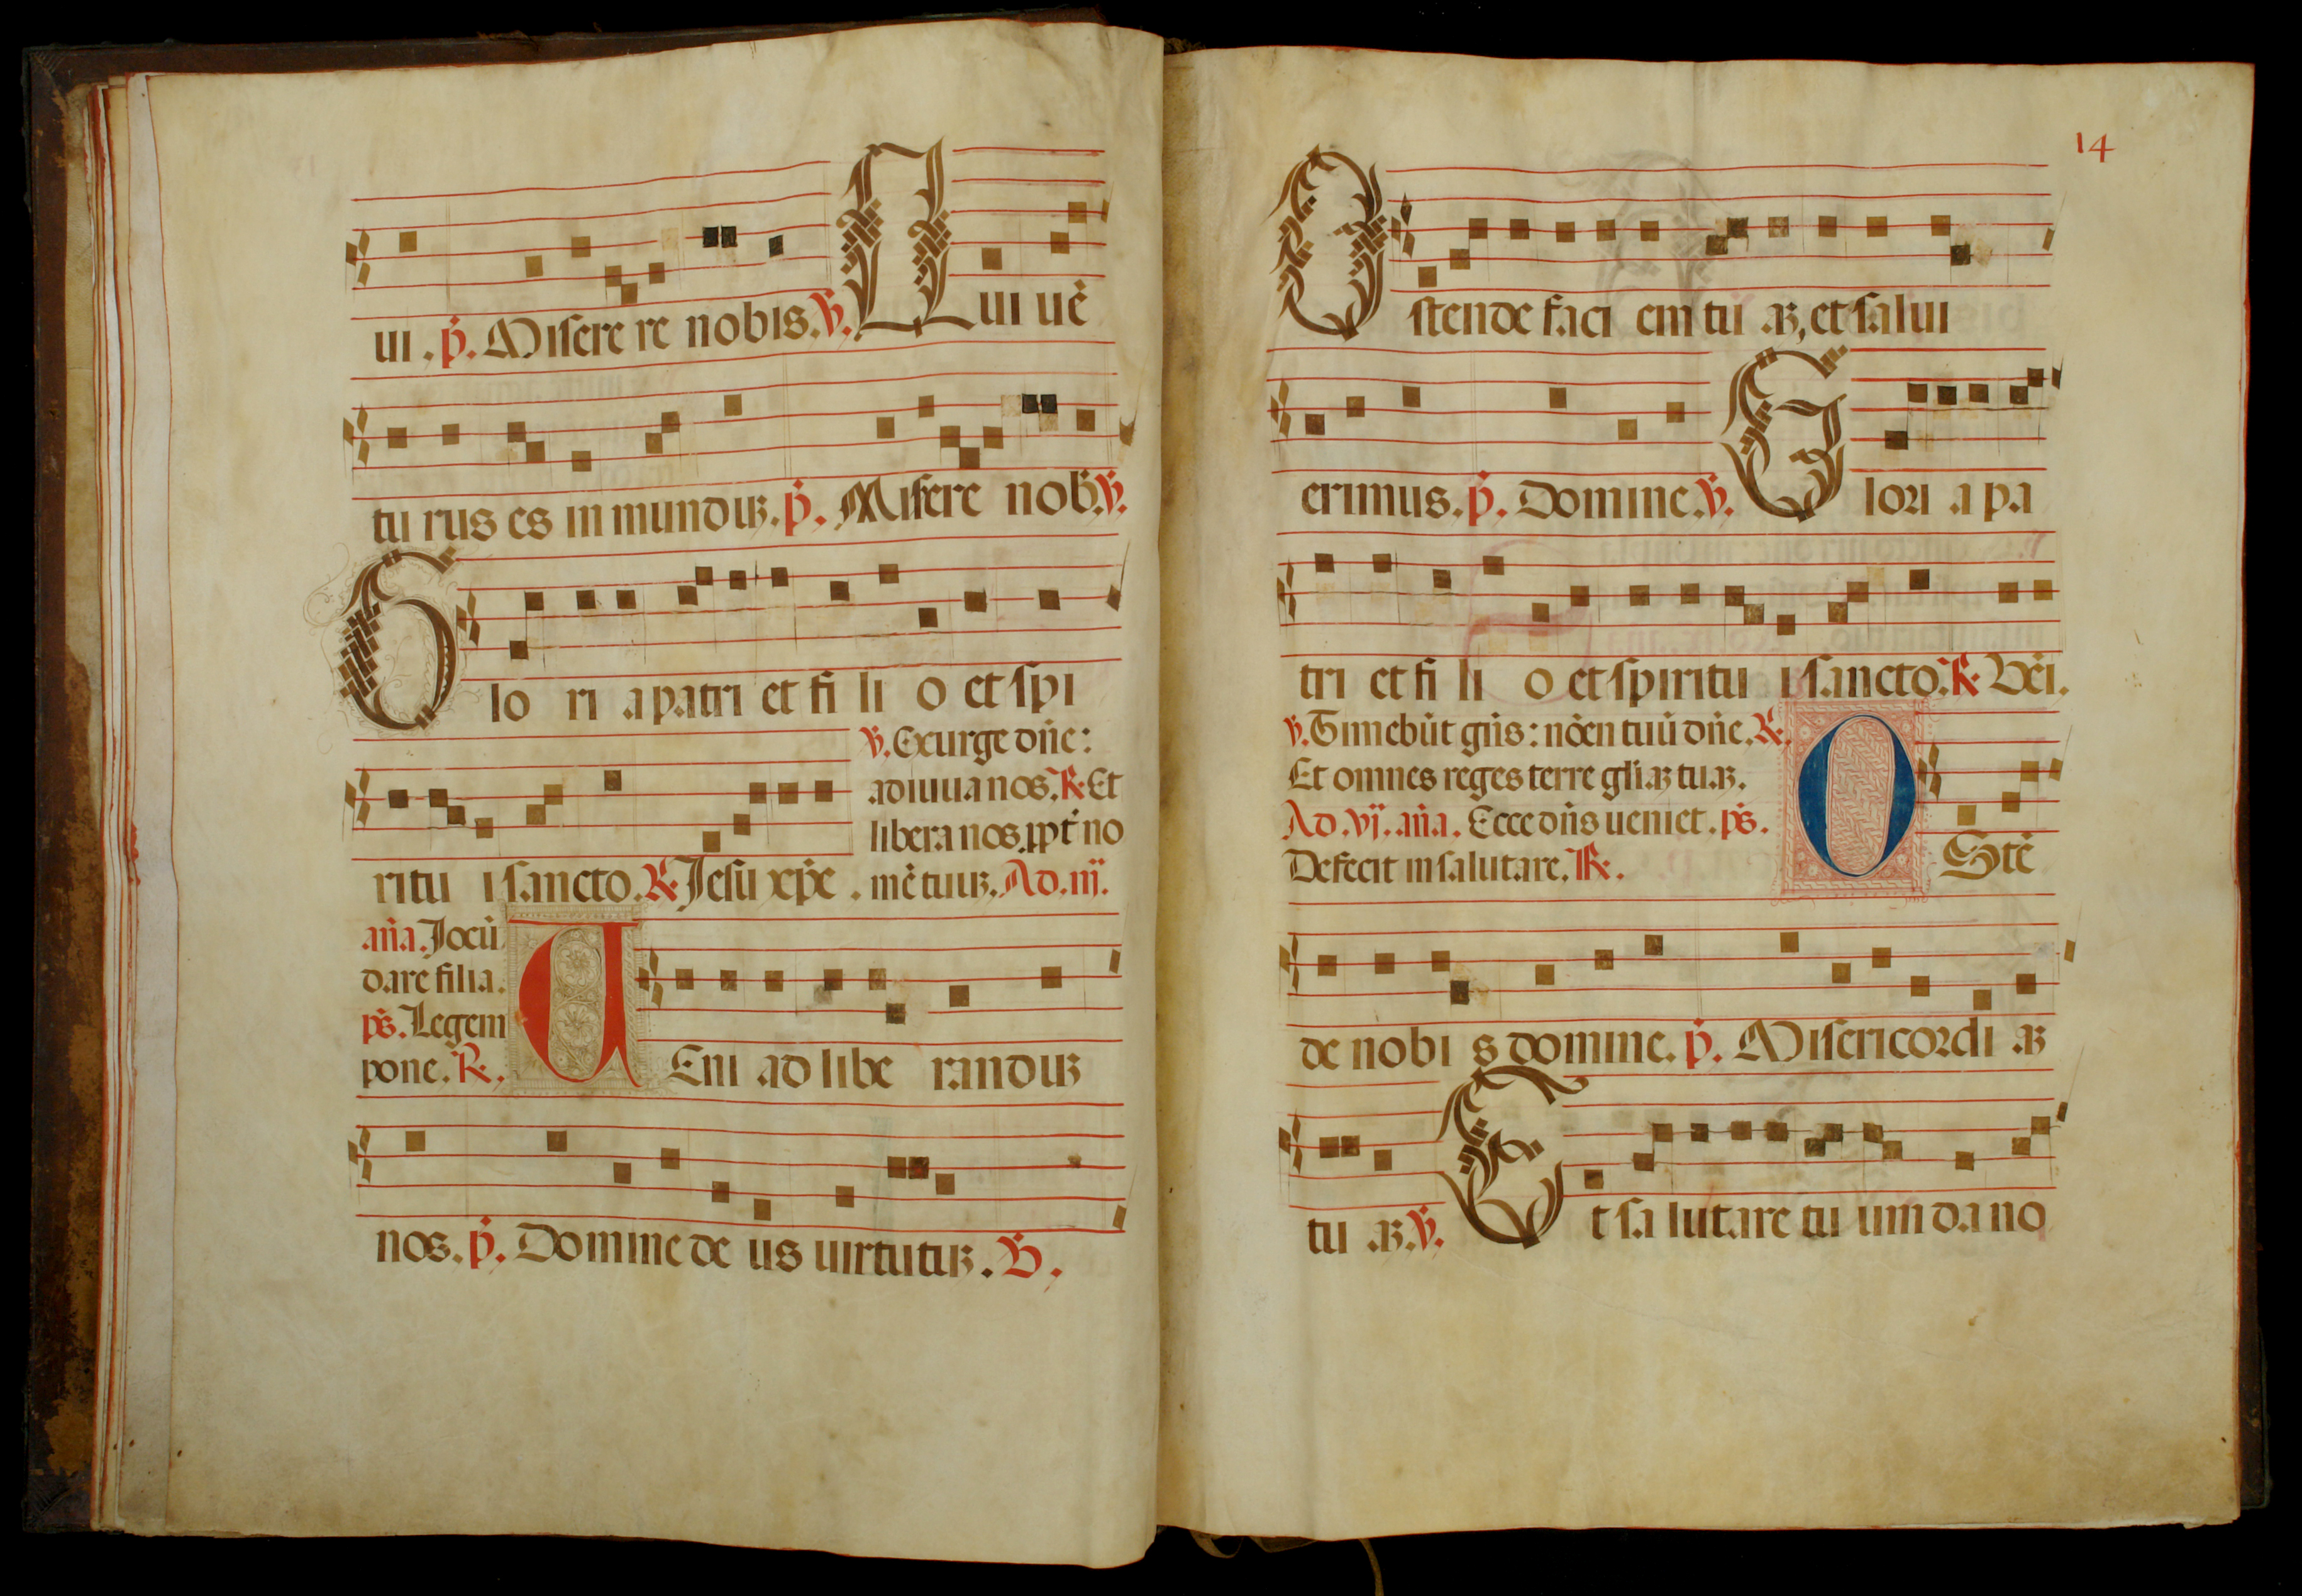 ui. p. Misere re nobis. V. Qui uē
tu rus es in munduʒ. p. Misere nob. V.
Glo ri a patri et fi li o et spi
V. Exurge dn̄e:
adiuua nos. R. Et
libera nos ꝓpt̄ no
ritu i sancto. R. Jesu xp̄e. mē tuuʒ. Ad. iij.
an̄a. Jocū
dare filia.
ps. Legem
pone. R. VEni ad libe randuʒ
nos. p. Domine de us uirtutuʒ. V.
14
Ostende faci em tu aʒ, et salui
erimus. p. Domine. V. Glori a pa
tri et fi li o et spiritu i sancto. R. Vēi.
V. Timebūt gn̄s: nōen tuū dn̄e. R.
Et omnes reges terre gl̄iaʒ tuaʒ.
Ad. vj. an̄a. Ecce dn̄s ueniet. ps.
Defecit in salutare. R. OStē
de nobi s domine. p. Misericordi aʒ
tu aʒ. V. Et sa lutare tu um da no